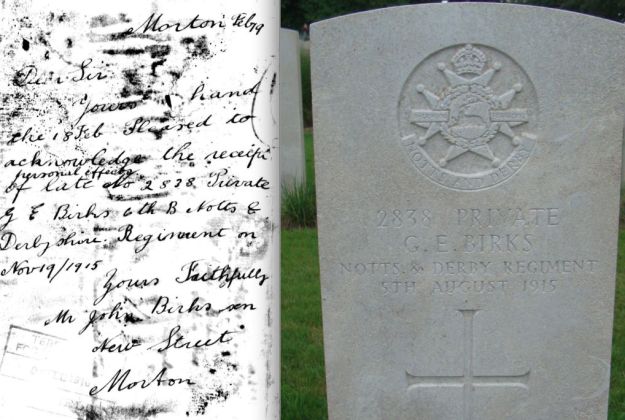 Morton Feb 19
Dear Sir
Yours hand
the 18 Feb Pleased to
acknowledge the receipt
personal effects
of late No 2838 Private
G E Birks 6th B Notts &
Derbyshire Regiment on
Nov 19/1915
Yours Faithfully
Mr John Birks sen
New Street
Morton
NOTTS AND DERBY
2838 PRIVATE
G. E. BIRKS
NOTTS. & DERBY REGIMENT
5TH AUGUST 1915